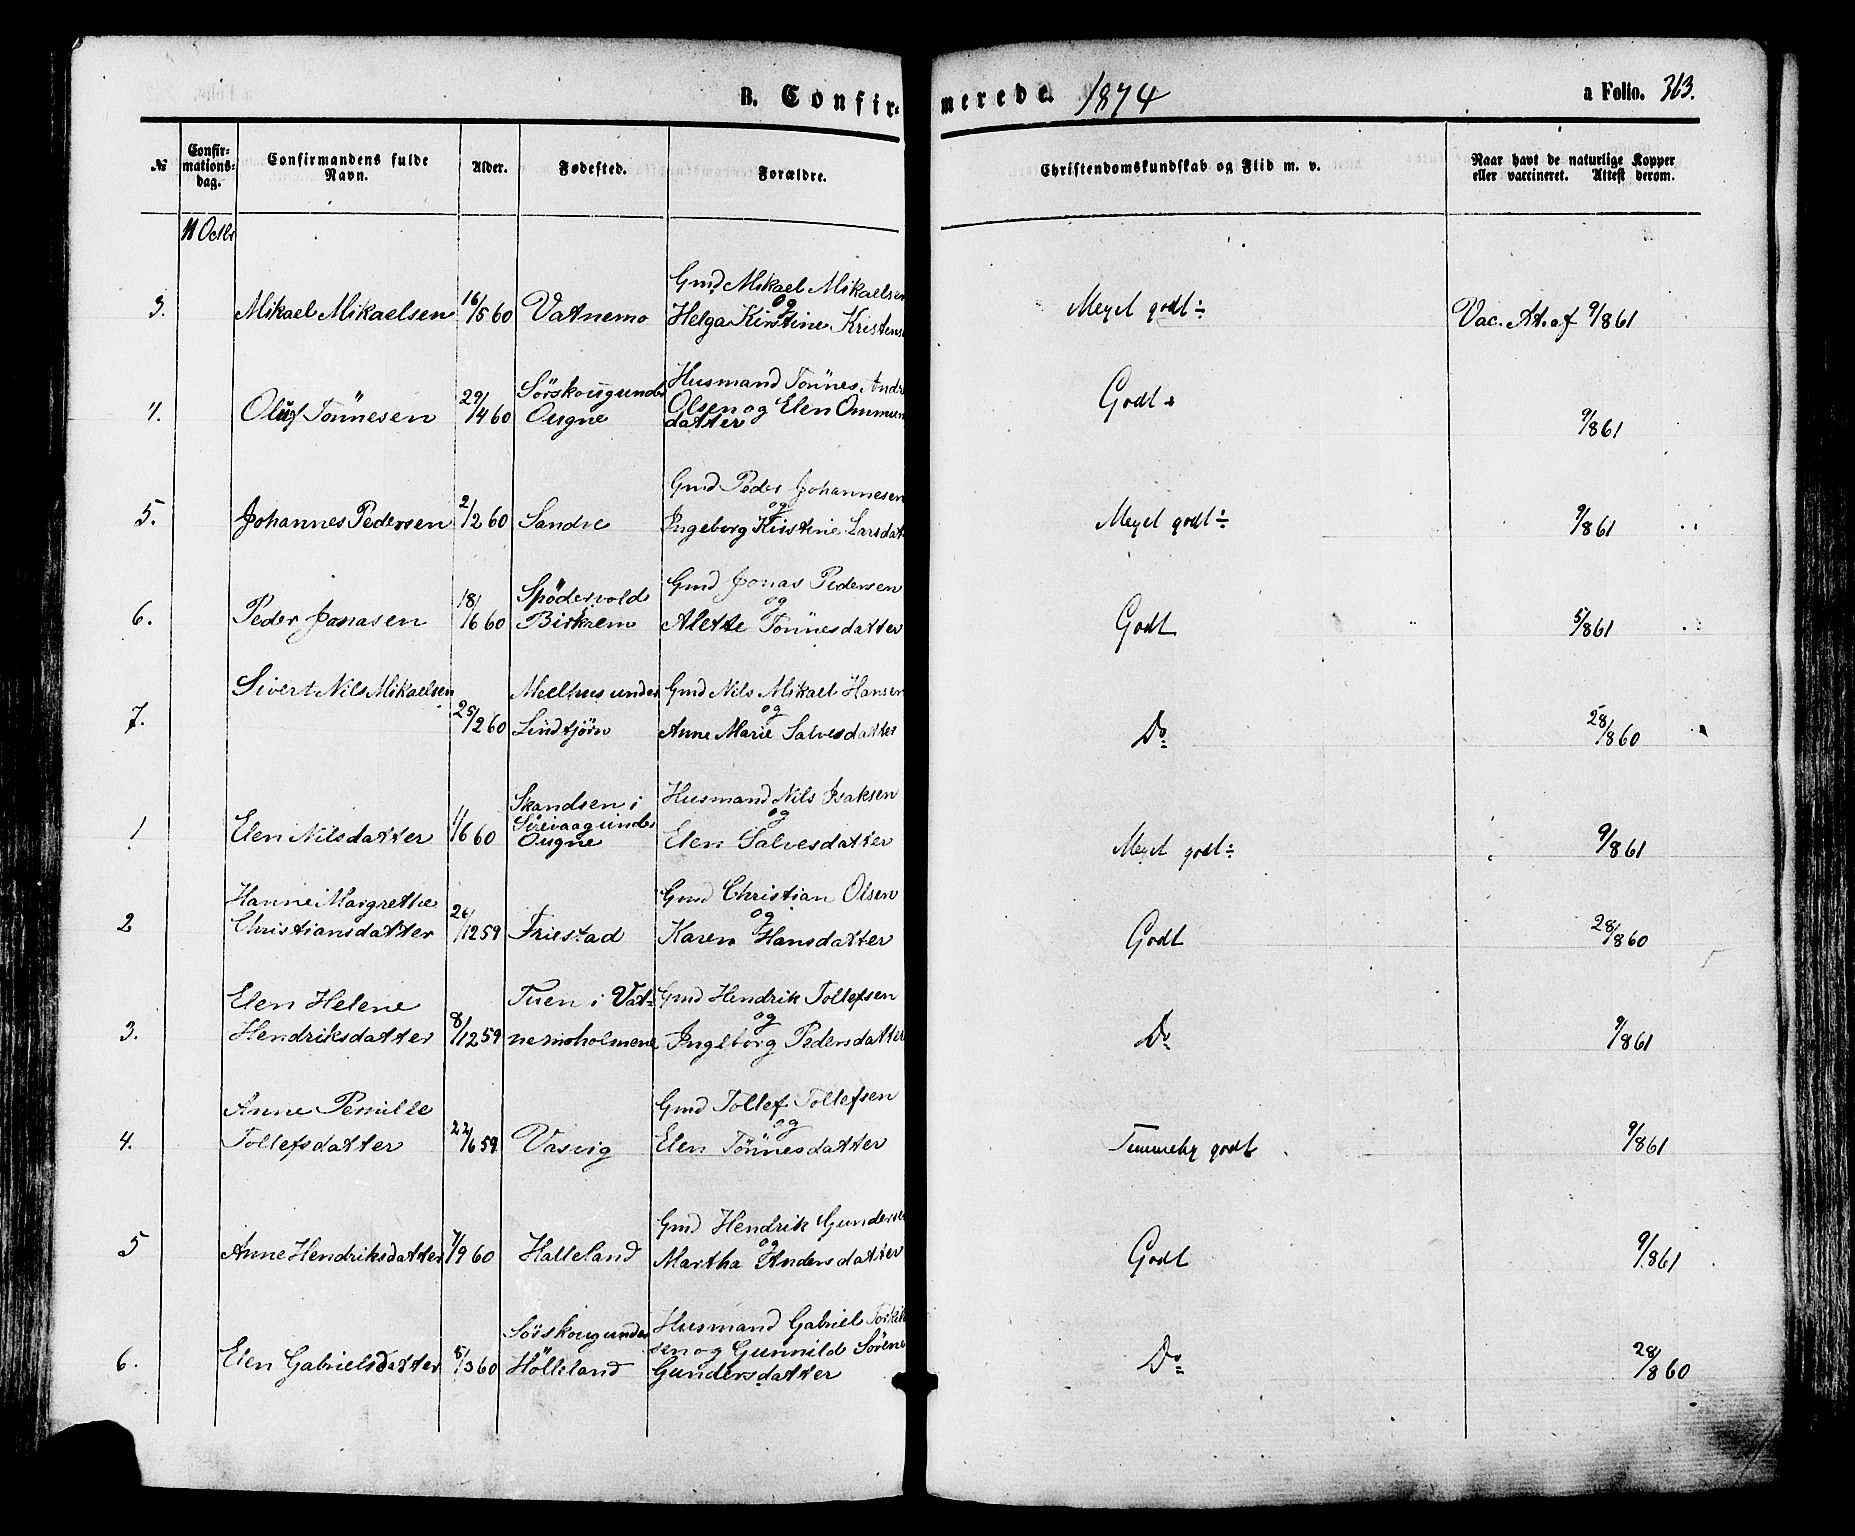 B. Confirmerede. 1874
a Folio. 313.
№ Confirmationsdag. Confirmandens fulde Navn. Alder. Fødested. Forældre. Christendomskundskab og Flid m. v. Naar havt de naturlige Kopper eller vaccineret. Attest derom.
11 Octbr
Gmd Mikael Mikaelsen
og
3. Mikael Mikaelsen 16/5 60 Vatnemo Helga Kirstine Kristens Meget godt ÷ Vac. At. af 9/8 61
Sörskougunder Husmand Tönnes Andr
4. Oluf Tönnesen 29/4 60 Ougne Olsen og Elen Ommun Godt + 9/8 61
datter
Gmd Peder Johannesen
og
5. Johannes Pedersen 2/2 60 Sandve Ingeborg Kirstine Larsdat Meget godt ÷ 9/8 61
Spödervold Gmd Jonas Pedersen
og
6. Peder Jonasen 18/6 60 Birkrem Alette Tönnesdatter Godt 5/8 61
Sivert Nils Mikaelsen Meelhus under Gmd Nils Mikael Hansen
og
7. 25/2 60 Lindtjörn Anne Marie Salvesdatter Do 28/8 60
Skandsen i Husmand Nils Isaksen
Sirevaag under og
1 Elen Nilsdatter 1/6 60 Ougne Elen Salvesdatter Meget godt ÷ 9/8 61
Hanne Margrethe Gmd Christian Olsen
og
2 Christiansdatter 26/12 59 Friestad Karen Hansdatter Godt 28/8 60
Elen Helene Tuen i Vat- Gmd Hendrik Tollefsen
og
3. Hendriksdatter 8/12 59 nemoholmene Ingeborg Pedersdatter Do 9/8 61
Anne Pernille Gmd Tollef Tollefsen
og
4. Tollefsdatter 22/6 59 Vasvig Elen Tönnesdatter Temmelig godt 9/8 61
Gmd Hendrik Gunderse
og
5 Anne Hendriksdatter 7/9 60 Halleland Martha Andersdatter Godt 9/8 61
Sörskougunder Husmand Gabriel Torkil
sen og Gunnild Sörene
6. Elen Gabrielsdatter 5/3 60 Hölleland Gundersdatter Do 28/8 60